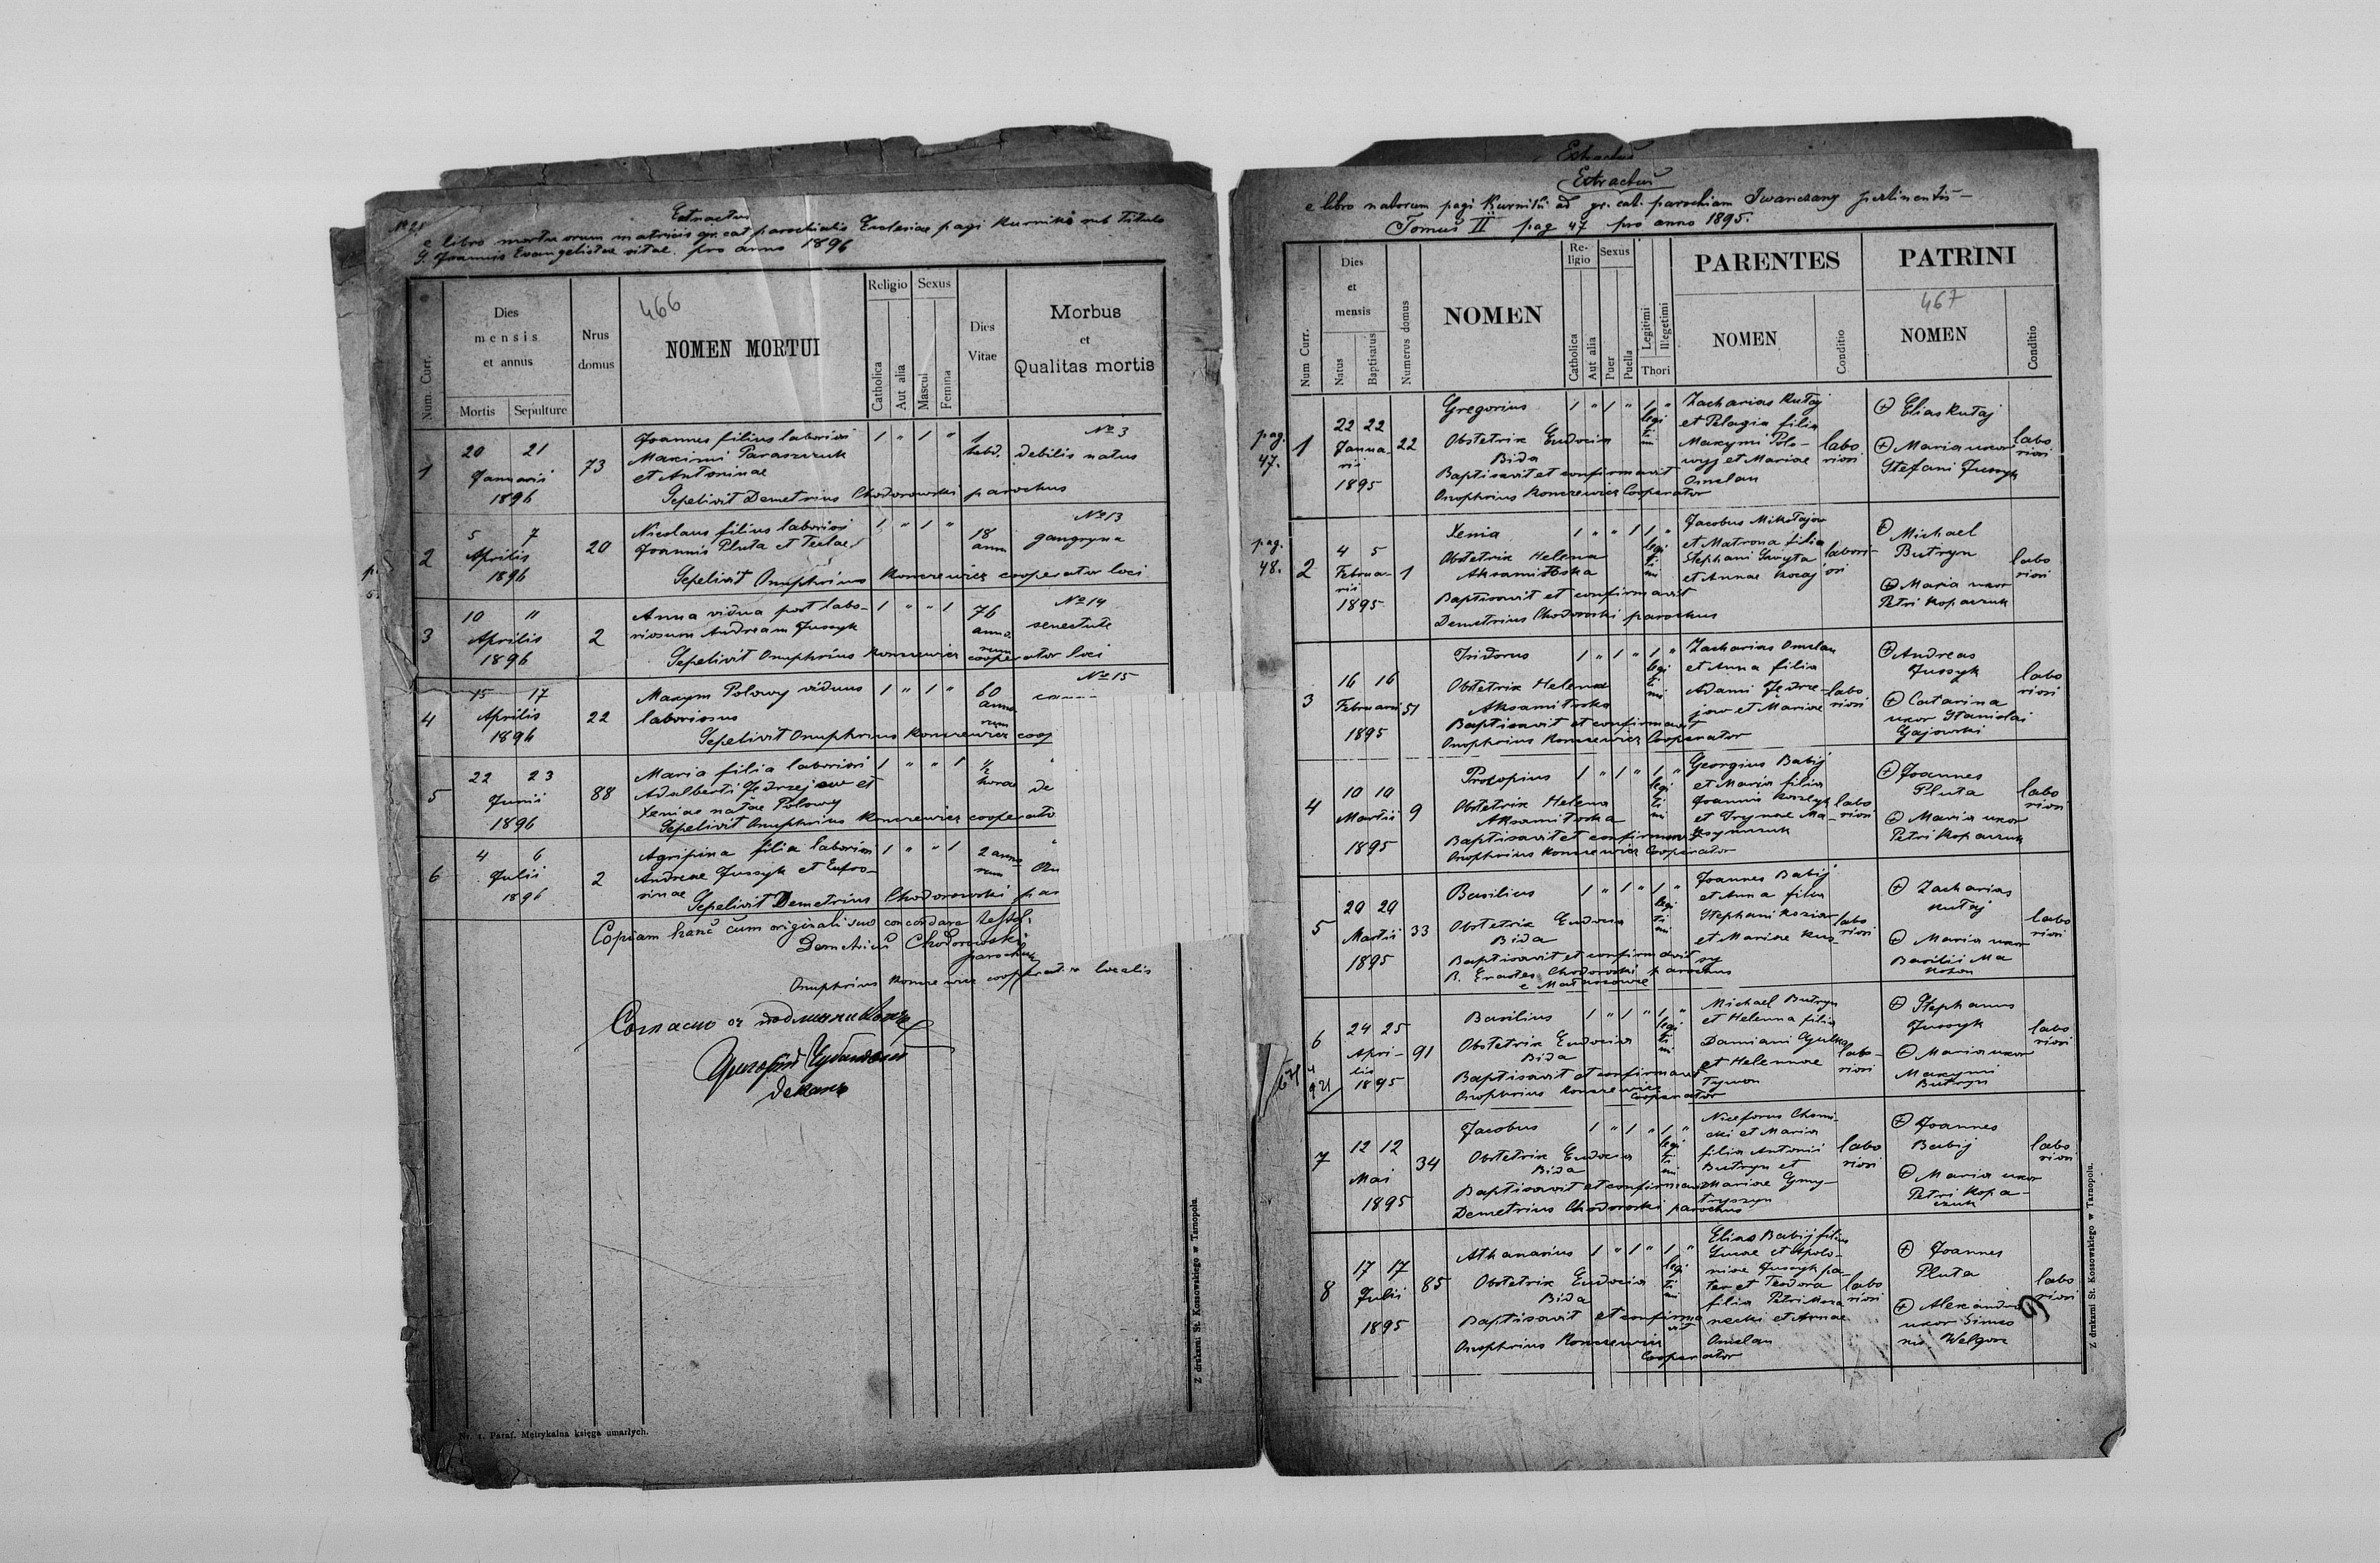 Extractus
e libro mortuorum matricis gr. cat. parochialis Ecclesiae pagi Kurniki sub titulo
S. Joannis Evangelistae sitae. pro anno 1896
466
Num. Curr.
Dies
mensis
et annus
Mortis Sepulture
Nrus
domus
NOMEN MORTUI
Religio
Catholica
Aut alia
Sexus
Mascul
Femina
Dies
Vitae
Morbus
et
Qualitas mortis
1
20 21
Januarii
1896
73
Joannes filius laboriosi
Maximi Paraszczuk
et Antoninae
1 " 1 "
1
hebd.
№ 3
debilis natus
Sepelivit Demetrius Chodorowski parochus
2
5 7
Aprilis
1896
20
Nicolaus filius laboriosi
Joannis Pluta et Teclae
1 " 1 "
18
ann
№ 13
gangryna
Sepelivit Onuphrius Konczewicz cooperator loci
3
10 "
Aprilis
1896
2
Anna vidua post labo-
riosum Andream Jussyk
1 " " 1
76
anno
rum
№ 14
senectute
Sepelivit Onuphrius Konczewicz cooperator loci
4
15 17
Aprilis
1896
22
Maxym Polowy viduus
laboriosus
1 " 1 "
60
anno
rum
№ 15
Sepelivit Onuphrius Konczewicz coop
5
22 23
Junii
1896
88
Maria filia laboriosi
Adalberti Jędrzejow et
Xeniae natae Polowy
1 " " 1
½
horae
de
Sepelivit Onuphrius Konczewicz cooperato
6
4 6
Julii
1896
2
Agripina filia laboriosi
Andreae Jussyk et Eufro-
sinae
1 " " 1
2 anno
rum
Sepelivit Demetrius Chodorowski par
Copiam hanc cum originali suo concordare testor
Demetrius Chodorowski
parochus
Onuphrius Konczewicz cooperator localis
Согласно съ подлинникомъ
Деканъ
Nr. 1. Paraf. Metrykalna księga umarłych.
Z drukarni St. Kossowskiego w Tarnopolu.
Extractus
Extractus
e libro natorum pagi Kurniki ad gr. cat. parochiam Iwanczany pertinentis
Tomus II pag 47 pro anno 1895.
Num Curr.
Dies
et
mensis
Natus
Baptisatus
Numerus domus
NOMEN
Re-
ligio
Catholica
Aut alia
Sexus
Puer
Puella
Legitimi
Illegetimi
Thori
PARENTES
NOMEN
Conditio
PATRINI
467
NOMEN
Conditio
pag.
47.
1
22 22
Janua-
rii
1895
22
Gregorius
Obstetrix Eudocia
Bida
Baptisavit et confirmavit
Onophrius Konczewicz Cooperator
1 " 1 " 1 "
legi
ti
mi
Zacharias Kutaj
et Pelagia filia
Maxymi Polo-
wyj et Mariae
Omelan
labo
riosi
Elias Kutaj
Maria uxor
Stefani Jussyk
labo
riosi
pag.
48.
2
4 5
Februa-
rii
1895
1
Xenia
Obstetrix Helena
Aksamitoska
Baptisavit et confirmavit
Demetrius Chodorowski parochus
1 " " 1 1 "
legi
ti
mi
Jacobus Mikołajow
et Matrona filia
Stephani
et Annae
labori-
osi
Michael
Butryn
Maria uxor
Petri Kopaczuk
labo
riosi
3
16 16
Februarii
1895
51
Isidorus
Obstetrix Helena
Aksamitoska
Baptisavit et confirmavit
Onophrius Konczewicz Cooperator
1 " 1 " 1 "
legi
ti
mi
Zacharias Omelan
et Anna filia
Adami Jędrze-
jow et Mariae
labo
riosi
Andreas
Jussyk
Catarina
uxor Stanislai
Gajowski
labo
riosi
4
10 10
Martii
1895
9
Prokopius
Obstetrix Helena
Aksamitoska
Baptisavit et confirmavit
Onophrius Konczewicz Cooperator
1 " 1 " 1 "
legi
ti
mi
Georgius Babij
et Maria filia
Joannis
et Irynae Ma-
ksymczuk
labo
riosi
Joannes
Pluta
Maria uxor
Petri Kopaczuk
labo
riosi
5
20 20
Martii
1895
33
Basilius
Obstetrix Eudocia
Bida
Baptisavit et confirmavit
Chodorowski parochus
1 " 1 " 1 "
legi
ti
mi
Joannes Babij
et Anna filia
Stephani
et Mariae
labo
riosi
Zacharias
Kutaj
Maria uxor
Basilii
labo
riosi
6
24 25
Apri-
lis
1895
91
Basilius
Obstetrix Eudocia
Bida
Baptisavit et confirmavit
Onophrius Konczewicz
Cooperator
1 " 1 " 1 "
legi
ti
mi
Michael Butryn
et Helenna filia
Damiani
et Helennae
Tymon
labo-
riosi
Stephanus
Jussyk
Maria uxor
Maxymi
Butryn
labo
riosi
7
12 12
Mai
1895
34
Jacobus
Obstetrix Eudocia
Bida
Baptisavit et confirmavit
Demetrius Chodorowski parochus
1 " 1 " 1 "
legi
ti
mi
Niceforus Chomi-
cki et Maria
filia Antonii
Butryn et
Mariae Gmy-
tryszyn
labo
riosi
Joannes
Babij
Maria uxor
Petri Kopa-
czuk
labo
riosi
8
17 17
Julii
1895
85
Athanasius
Obstetrix Eudocia
Bida
Baptisavit et confirma
vit
Onophrius Konczewicz
Cooperator
1 " 1 " 1 "
legi
ti
mi
Elias Babij filius
Lucae et Apolo-
niae Jussyk pa-
ter et Teodora
filia Petri
et Annae
Omelan
labo
riosi
Joannes
Pluta
Alexandra
uxor Simeo
nis
labo
riosi
Z drukarni St. Kossowskiego w Tarnopolu.